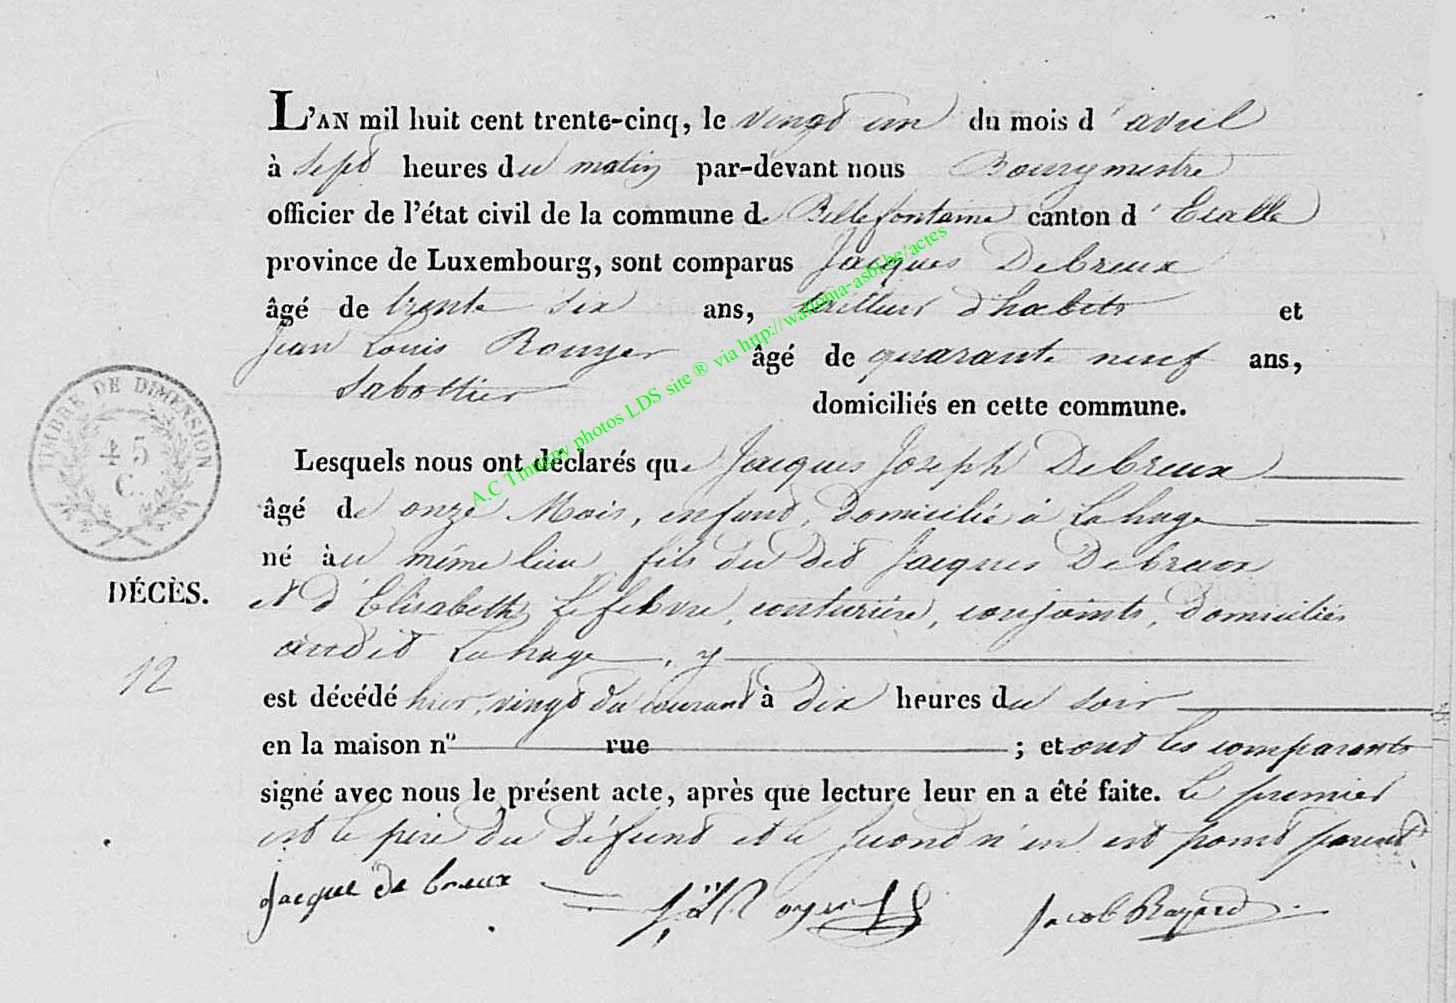 L'AN mil huit cent trente-cinq, le vingt un du mois d'avril
à sept heures du matin par-devant nous Bourgmestre
officier de l'état civil de la commune de Bellefontaine canton d'Etalle
province de Luxembourg, sont comparus Jacques Debreux
âgé de trente six ans, tailleur d'habits et
Jean Louis Rouyer âgé de quarante neuf ans,
Sabottier domiciliés en cette commune.
Lesquels nous ont déclarés que Jacques Joseph Debreux
âgé de onze Mois, enfant, domicilié à Lahage
né au même lieu fils du dit Jacques Debreux
et d'Elisabeth Lefebvre, couturière, conjoints, domiciliés
audit Lahage, y
est décédé hier, vingt du courant à dix heures du soir
en la maison n° rue ; et ont les comparants
signé avec nous le présent acte, après que lecture leur en a été faite. Le premier
est le père du défunt et le second n'en est point parent
Jacque de breux J. L. Royer Jacob
TIMBRE DE DIMENSION
45
C.
DÉCÈS.
12
A.C Tintigny photos LDS site ® via http://wallonia-asbl.be/actes